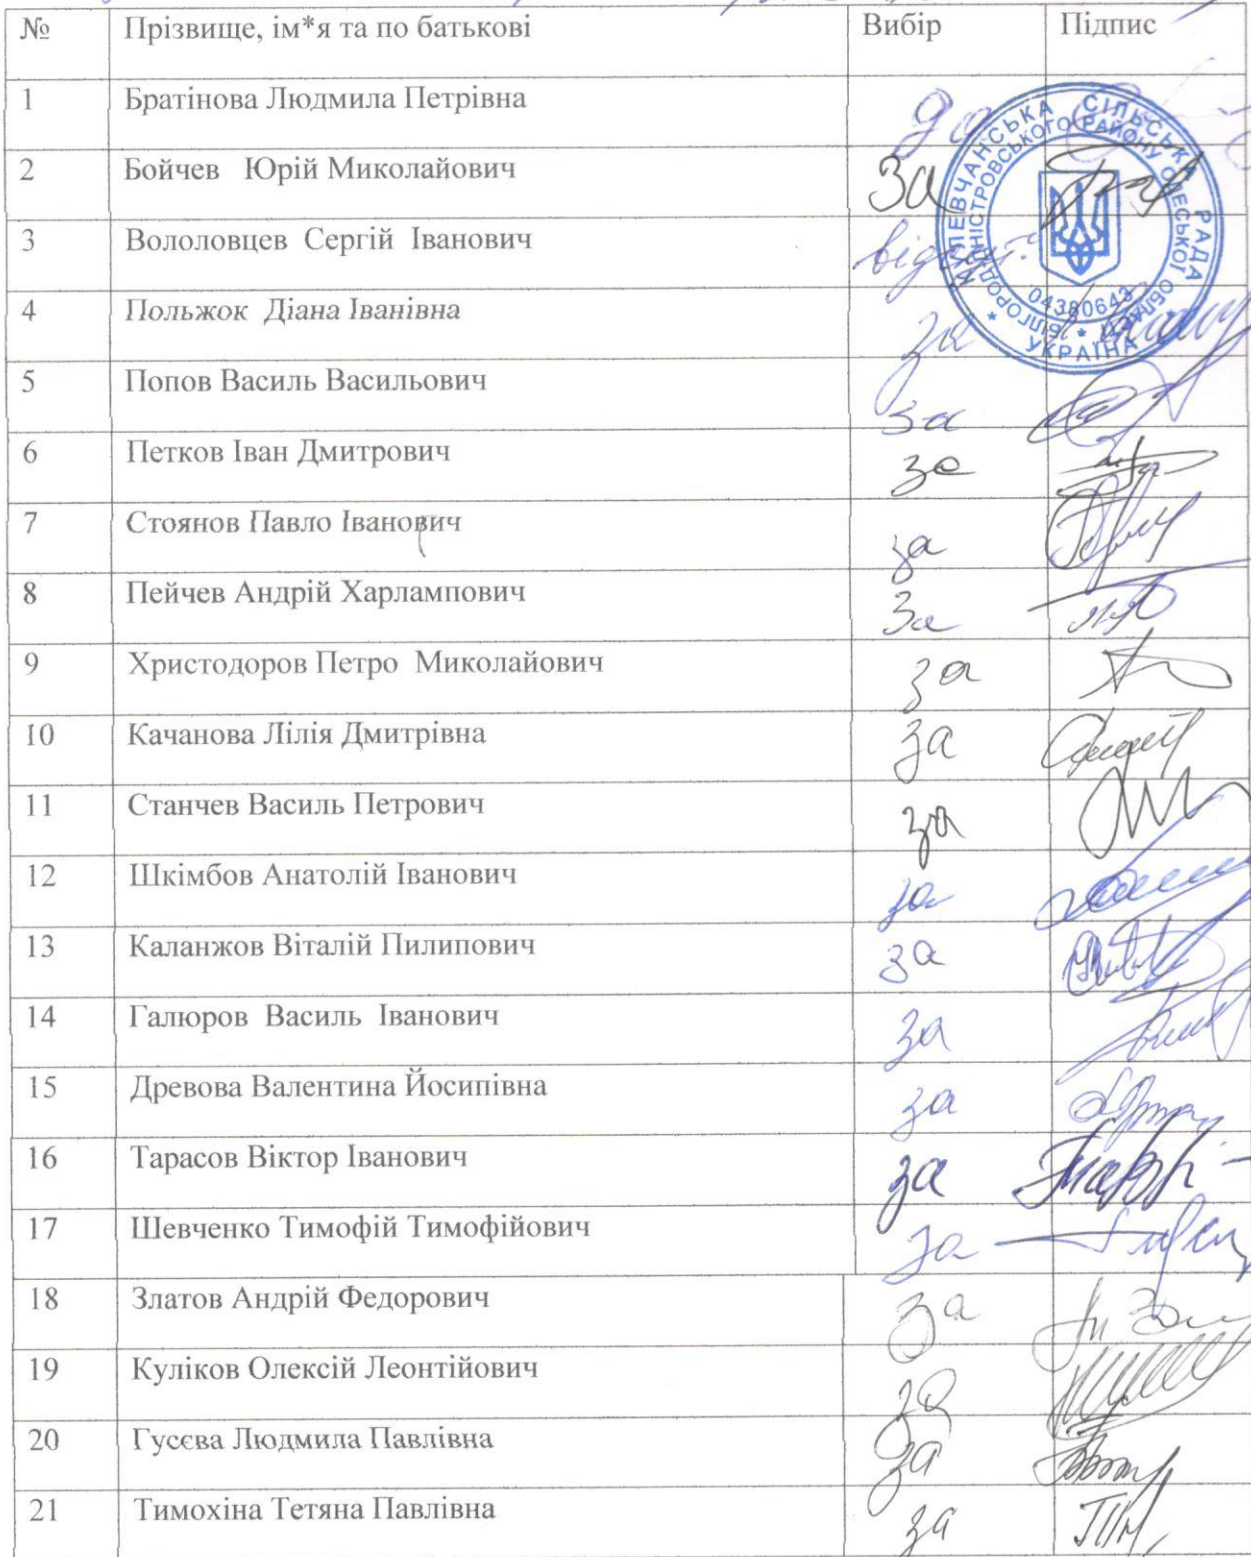 № Прізвище, ім*я та по батькові Вибір Підпис
1 Братінова Людмила Петрівна
2 Бойчев Юрій Миколайович За
3 Вололовцев Сергій Іванович
4 Польжок Діана Іванівна за
5 Попов Василь Васильович За
6 Петков Іван Дмитрович за
7 Стоянов Павло Іванович за
8 Пейчев Андрій Харлампович За
9 Христодоров Петро Миколайович за
10 Качанова Лілія Дмитрівна за
11 Станчев Василь Петрович за
12 Шкімбов Анатолій Іванович за
13 Каланжов Віталій Пилипович за
14 Галюров Василь Іванович за
15 Древова Валентина Йосипівна за
16 Тарасов Віктор Іванович за
17 Шевченко Тимофій Тимофійович за
18 Златов Андрій Федорович за
19 Куліков Олексій Леонтійович за
20 Гусєва Людмила Павлівна за
21 Тимохіна Тетяна Павлівна за
СІЛЬСЬКА РАДА
РАЙОНУ ОДЕСЬКОЇ ОБЛАСТІ
04380643
УКРАЇНА